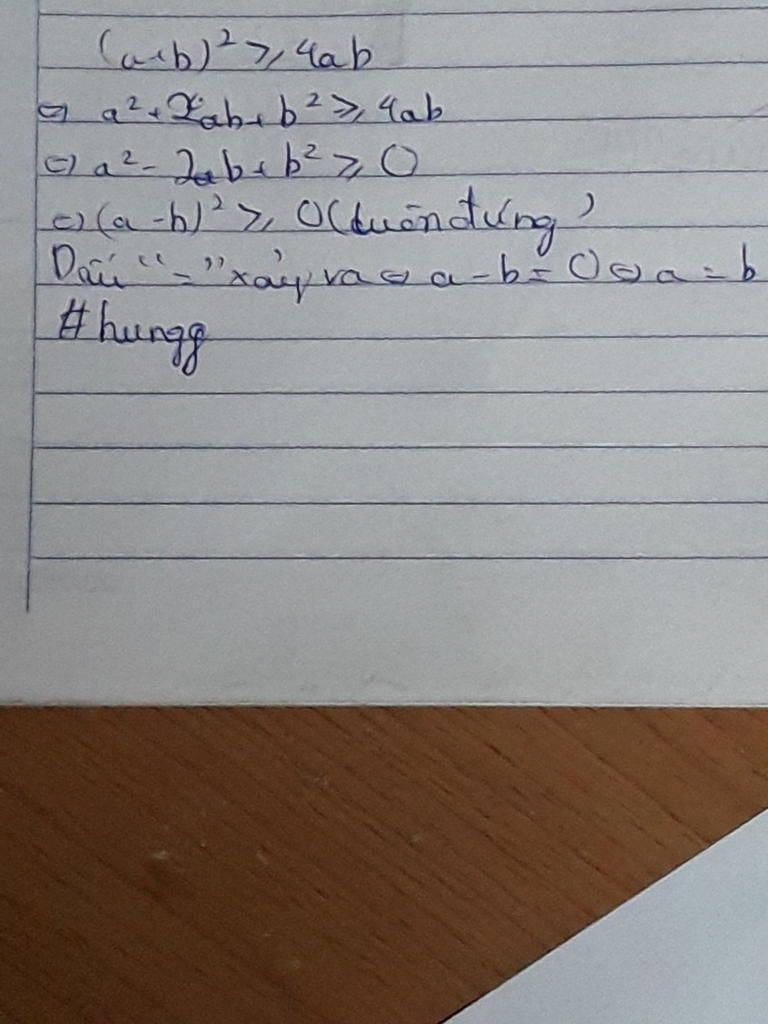 (a+b)² ≥ 4ab
⇔ a² + 2ab + b² ≥ 4ab
⇔ a² - 2ab + b² ≥ 0
⇔ (a-b)² ≥ 0 (luôn đúng)
Dấu "=" xảy ra ⇔ a-b = 0 ⇔ a = b
#hungg